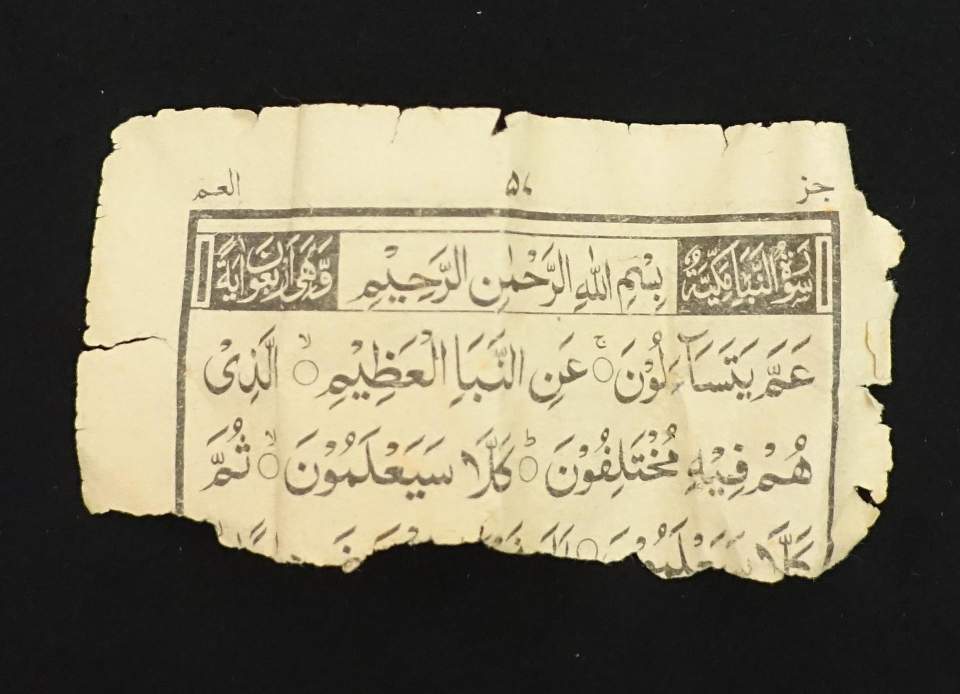 جز العم
سُوْرَةُ النَّبَاِ مَكِّيَّةٌ بِسْمِ اللهِ الرَّحْمٰنِ الرَّحِيْمِ وَّهِىَ اَرْبَعُوْنَ اٰيَةً
عَمَّ يَتَسَآءَلُوْنَ ۚ عَنِ النَّبَاِ الْعَظِيْمِ ۙ الَّذِىْ
هُمْ فِيْهِ مُخْتَلِفُوْنَ ؕ كَلَّا سَيَعْلَمُوْنَ ۙ ثُمَّ
كَلَّا سَيَعْلَمُوْنَ